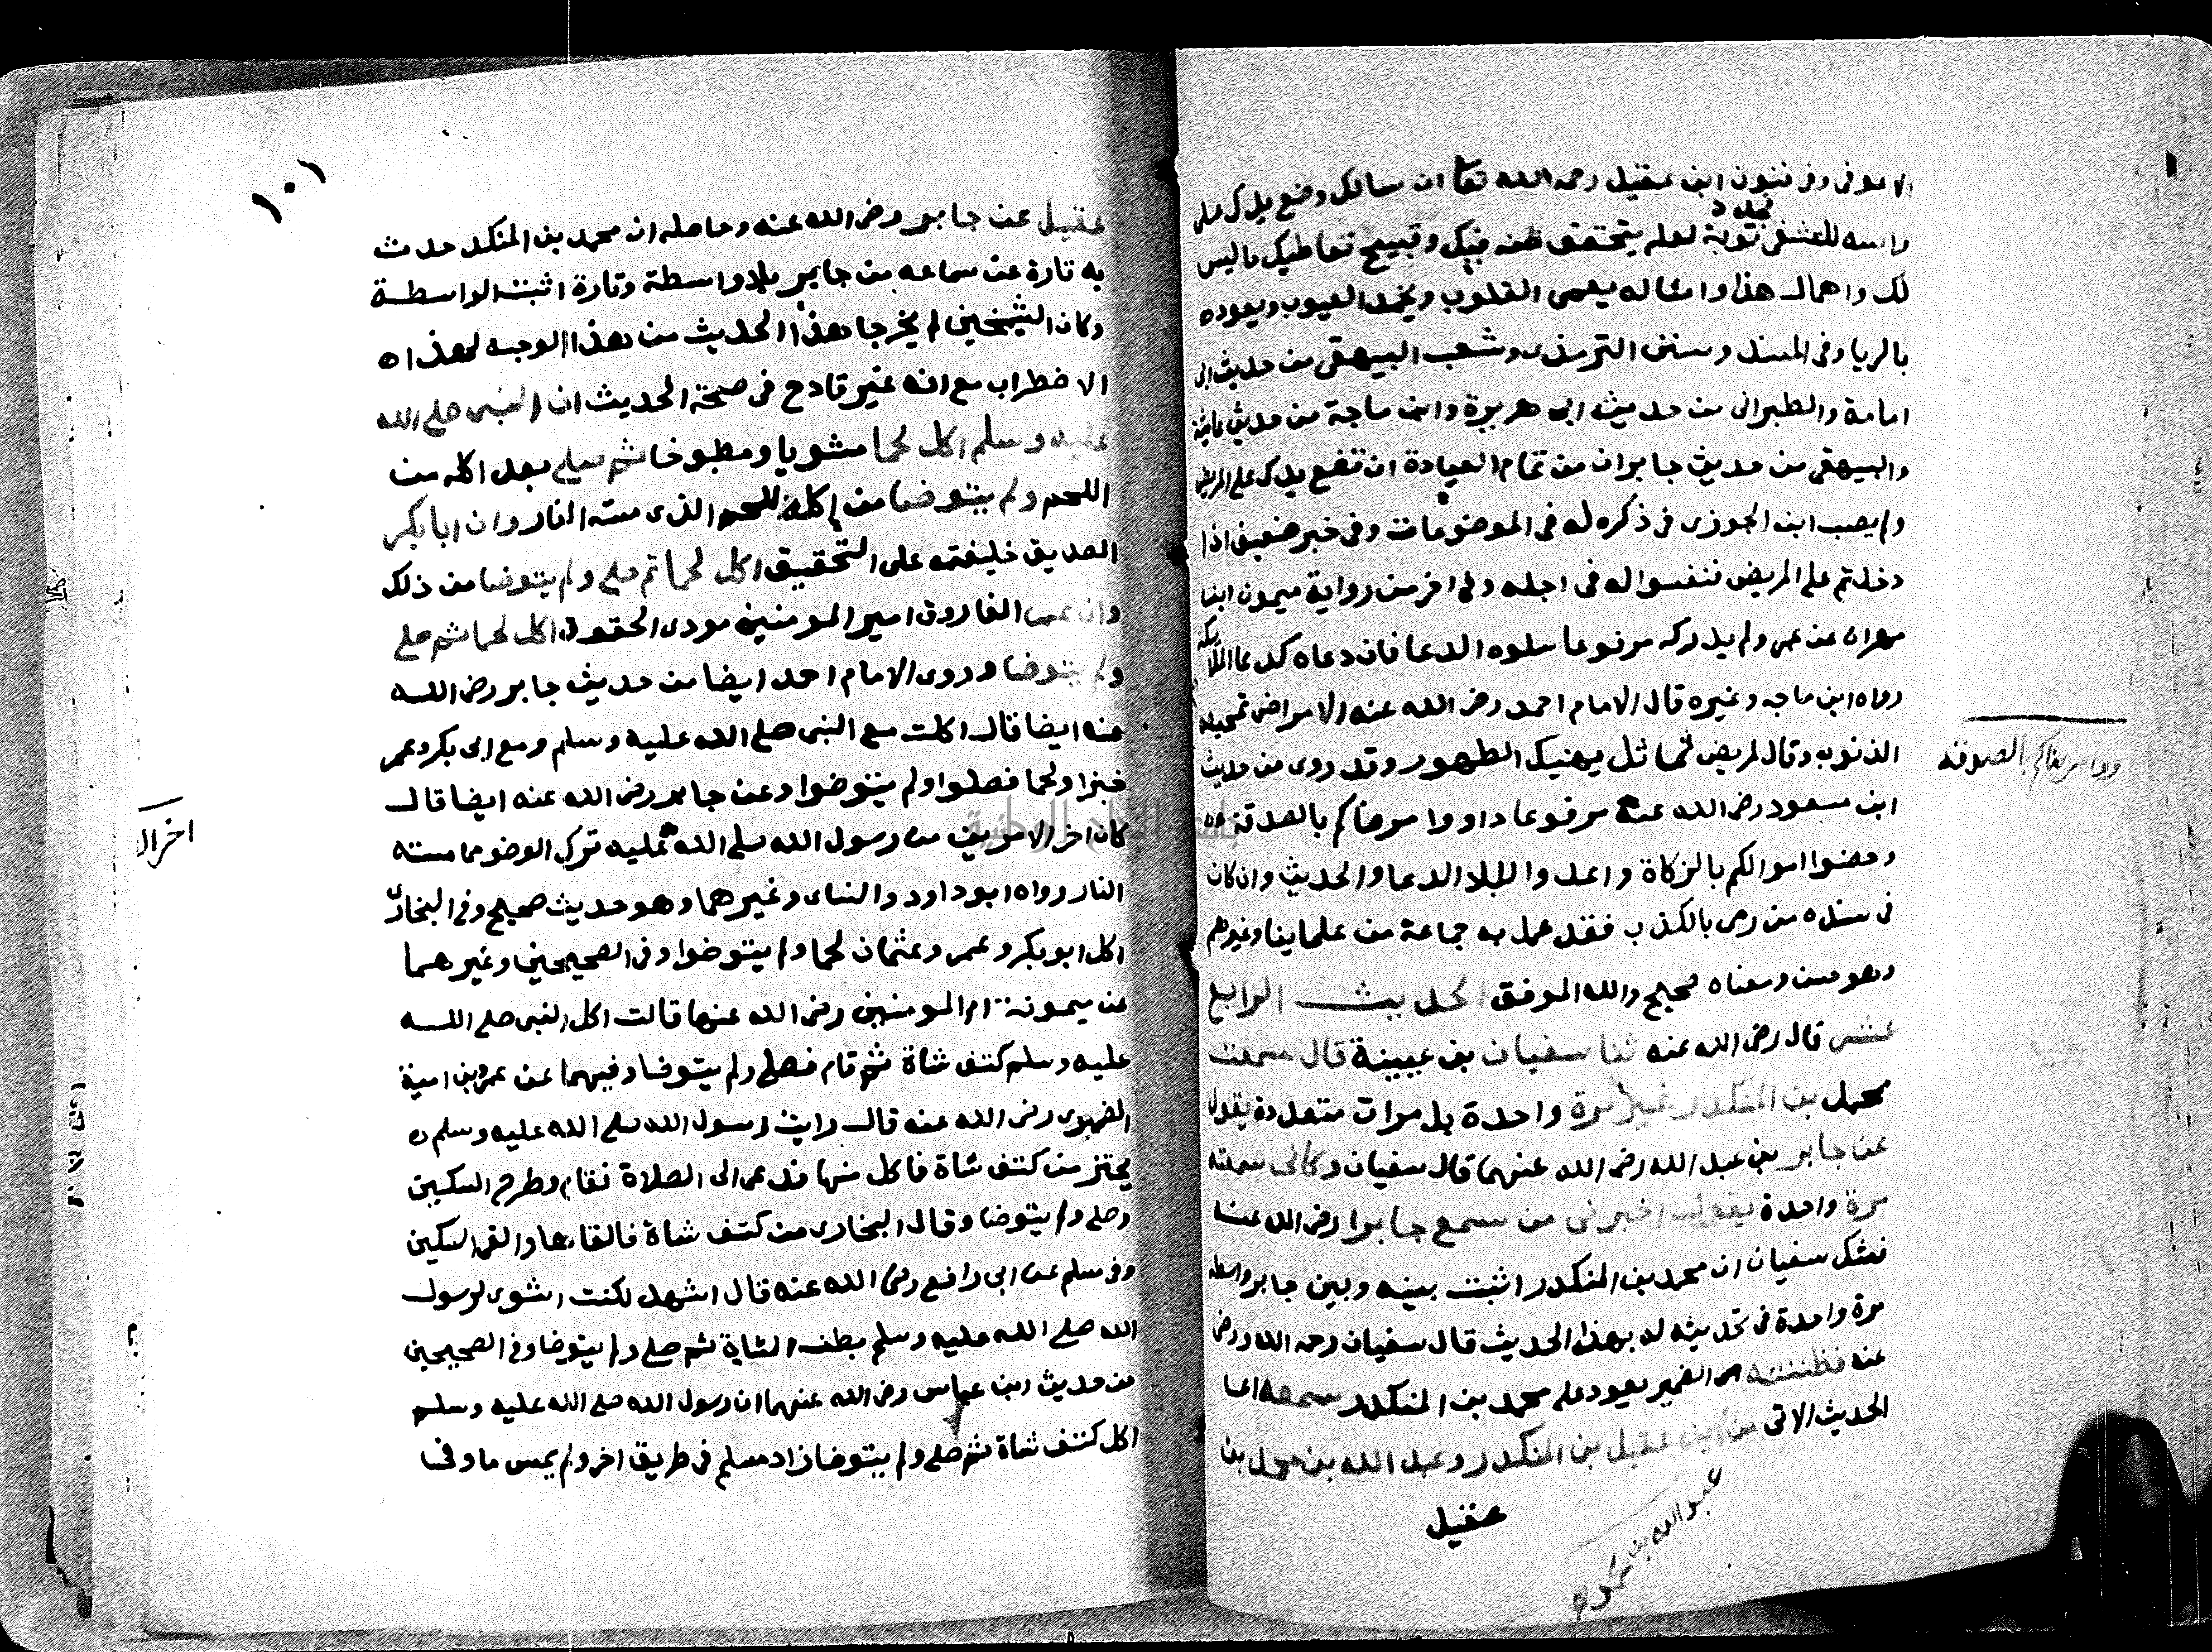 الا عوفى وفى فنون ابن عقيل رحمه الله تعا ان سالك وضع يدك على
راسه للتشفى تجدد توبة لعله يتحقق ظنه فيك وقبيح تعاطيك ما ليس
لك واهمال هذا وامثاله يعمى القلوب ويخمد العيوب ويعوده
بالريا وفى المسند وسنن الترمذى وشعب البيهقى من حديث ابى
امامة والطبرانى من حديث ابى هريرة وابن ماجة من حديث عايشة
والبيهقى من حديث جابر ان من تمام العيادة ان تضع يدك على المريض
ولم يصب ابن الجوزى فى ذكره له فى الموضوعات وفى خبر ضعيف اذا
دخلتم على المريض فنفسوا له فى اجله وفى اخر من رواية ميمون ابن
مهران عن عمر ولم يدركه مرفوعا سلوه الدعا فان دعاه كدعا الملائكة
رواه ابن ماجه وغيره قال الامام احمد رضى الله عنه الامراض تمحيص
الذنوب وقال لمريض تماثل يهنيك الطهور وقد روى من حديث
ابن مسعود رضى الله عنه مرفوعا داووا مرضاكم بالصدقة
وحصنوا اموالكم بالزكاة واعدوا للبلا الدعا والحديث وان كان
فى سنده من رمى بالكذب فقد عمل به جماعة من علماينا وغيرهم
وهو حسن ومعناه صحيح والله الموفق الحديث الرابع
عشر قال رضى الله عنه ثنا سفيان بن عيينة قال سمعت
محمد بن المنكدر غير مرة واحدة بل مرات متعددة يقول
عن جابر بن عبد الله رضى الله عنهما قال سفيان وكانى سمعته
مرة واحدة يقول اخبرنى من سمع جابرا رضى الله عنه
فشك سفيان ان محمد بن المنكدر اثبت بينه وبين جابر واسطه
مرة واحدة فى تحديثه له بهذا الحديث قال سفيان رحمه الله ورضى
عنه فظننته الضمير يعود على محمد بن المنكدر سمعه اى
الحديث الاتى من ابن عقيل بن المنكدر وعبد الله بن محمد بن
عقيل
عبد الله بن محمد
داووا مرضاكم بالصدقة
١٠١
عقيل عن جابر رضى الله عنه وحاصله ان محمد بن المنكدر حدث
به تارة عن سماعه من جابر بلا واسطة وتارة اثبت الواسطة
وكان الشيخين لم يخرجا هذا الحديث من هذا الوجه لهذا
الاضطراب مع انه غير قادح فى صحة الحديث ان النبى صلى الله
عليه وسلم اكل لحما مشويا ومطبوخا ثم صلى بعد اكله من
اللحم ولم يتوضا من اكله اللحم الذى مسته النار وان ابا بكر
الصديق خليفته على التحقيق اكل لحما ثم صلى ولم يتوضا من ذلك
وان عمر الفاروق امير المومنين مودى الحقوق اكل لحما ثم صلى
ولم يتوضا وروى الامام احمد ايضا من حديث جابر رضى الله
عنه ايضا قال اكلت مع النبى صلى الله عليه وسلم ومع ابى بكر وعمر
خبزا ولحما فصلوا ولم يتوضوا وعن جابر رضى الله عنه ايضا قال
كان اخر الامرين من رسول الله صلى الله عليه ترك الوضو مما مسته
النار رواه ابو داود والنساى وغيرهما وهو حديث صحيح وفى البخارى
اكل ابو بكر وعمر وعثمان لحما ولم يتوضوا وفى الصحيحين وغيرهما
عن ميمونة ام المومنين رضى الله عنها قالت اكل النبى صلى الله
عليه وسلم كتف شاة ثم قام فصلى ولم يتوضا وفيهما عن عمرو بن امية
الضمرى رضى الله عنه قال رايت رسول الله صلى الله عليه وسلم
يحتز من كتف شاة فاكل منها فدعى الى الصلاة فقام وطرح السكين
وصلى ولم يتوضا وقال البخارى من كتف شاة فالقاها والقى السكين
وفى مسلم عن ابى رافع رضى الله عنه قال اشهد لكنت اشوى لرسول
الله صلى الله عليه وسلم بطن الشاة ثم صلى ولم يتوضا وفى الصحيحين
من حديث ابن عباس رضى الله عنهما ان رسول الله صلى الله عليه وسلم
اكل كتف شاة ثم صلى ولم يتوضا زاد مسلم فى طريق اخر ولم يمس ما وفى
اخر ال